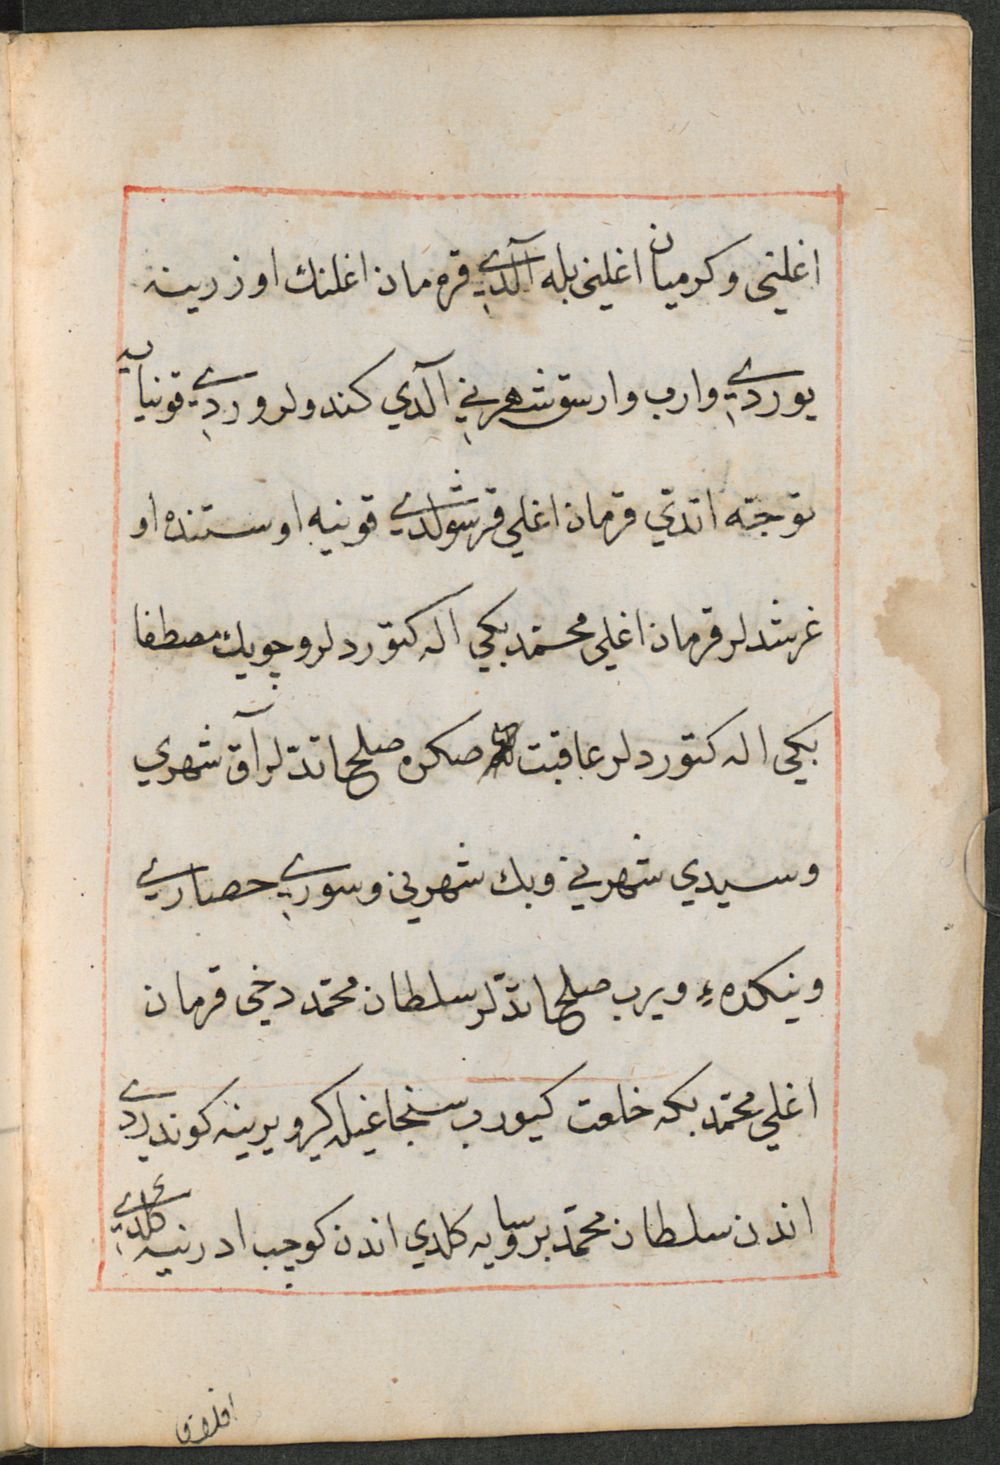 اغلنی و کرمیان اغلینی بله آلدي قره مان اغلنك اوزرینه
یوردي وارب وارسق شهرني آلدي کندولر وردي قونیایه
توجّه اتدّي قرمان اغلي قرشولدي قونیه اوستنده او
غرشدلر قرمان اغلي محمّد بكي اله کتوردلر و چویك مصطفا
بكی اله کتوردلر عاقبت صکره صلح اتدّلر آق شهري
و سیدي شهرني و بك شهرني و سوري حصاري
و نیکده‌ء ویرب صلح اتدّلر سلطان محمّد دخی قرمان
اغلي محمّد بکه خلعت کیورب سنجاغیله کیرو یرینه کوندردي
اندن سلطان محمّد بروسایه کلدي اندن کوچب ادرنیه کلدي
افلاق